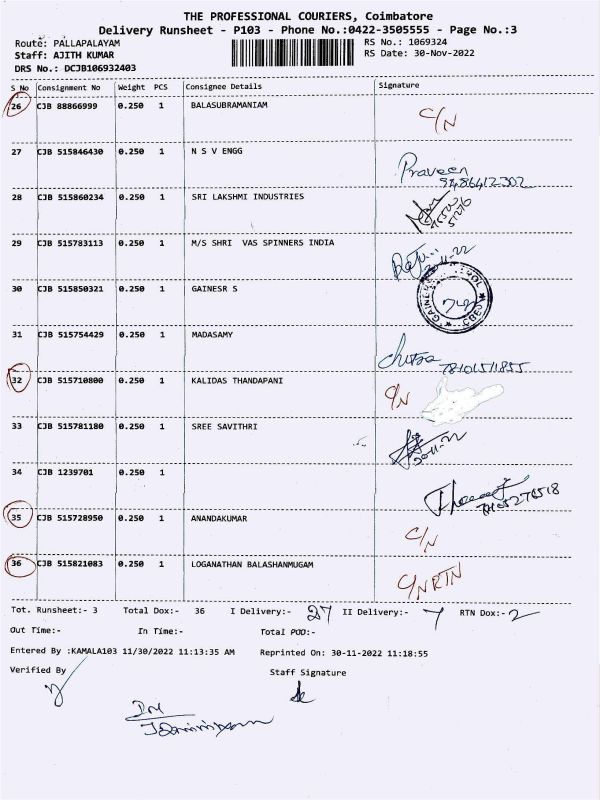 THE PROFESSIONAL COURIERS, Coimbatore
Delivery Runsheet - P103 - Phone No.:0422-3505555 - Page No.:3
Route: PALLAPALAYAM RS No.: 1069324
Staff: AJITH KUMAR RS Date: 30-Nov-2022
DRS No.: DCJB106932403
S No Consignment No Weight PCS Consignee Details Signature
26 CJB 88866999 0.250 1 BALASUBRAMANIAM C/N
27 CJB 515846430 0.250 1 N S V ENGG Praveen
9486412302
28 CJB 515860234 0.250 1 SRI LAKSHMI INDUSTRIES
29 CJB 515783113 0.250 1 M/S SHRI VAS SPINNERS INDIA
30 CJB 515850321 0.250 1 GAINESR S
31 CJB 515754429 0.250 1 MADASAMY Chitra
32 CJB 515710800 0.250 1 KALIDAS THANDAPANI C/N
33 CJB 515781180 0.250 1 SREE SAVITHRI
34 CJB 1239701 0.250 1
35 CJB 515728950 0.250 1 ANANDAKUMAR C/N
36 CJB 515821083 0.250 1 LOGANATHAN BALASHANMUGAM C/N RTN
Tot. Runsheet:- 3 Total Dox:- 36 I Delivery:- 27 II Delivery:- 7 RTN Dox:- 2
Out Time:- In Time:- Total POD:-
Entered By :KAMALA103 11/30/2022 11:13:35 AM Reprinted On: 30-11-2022 11:18:55
Verified By Staff Signature